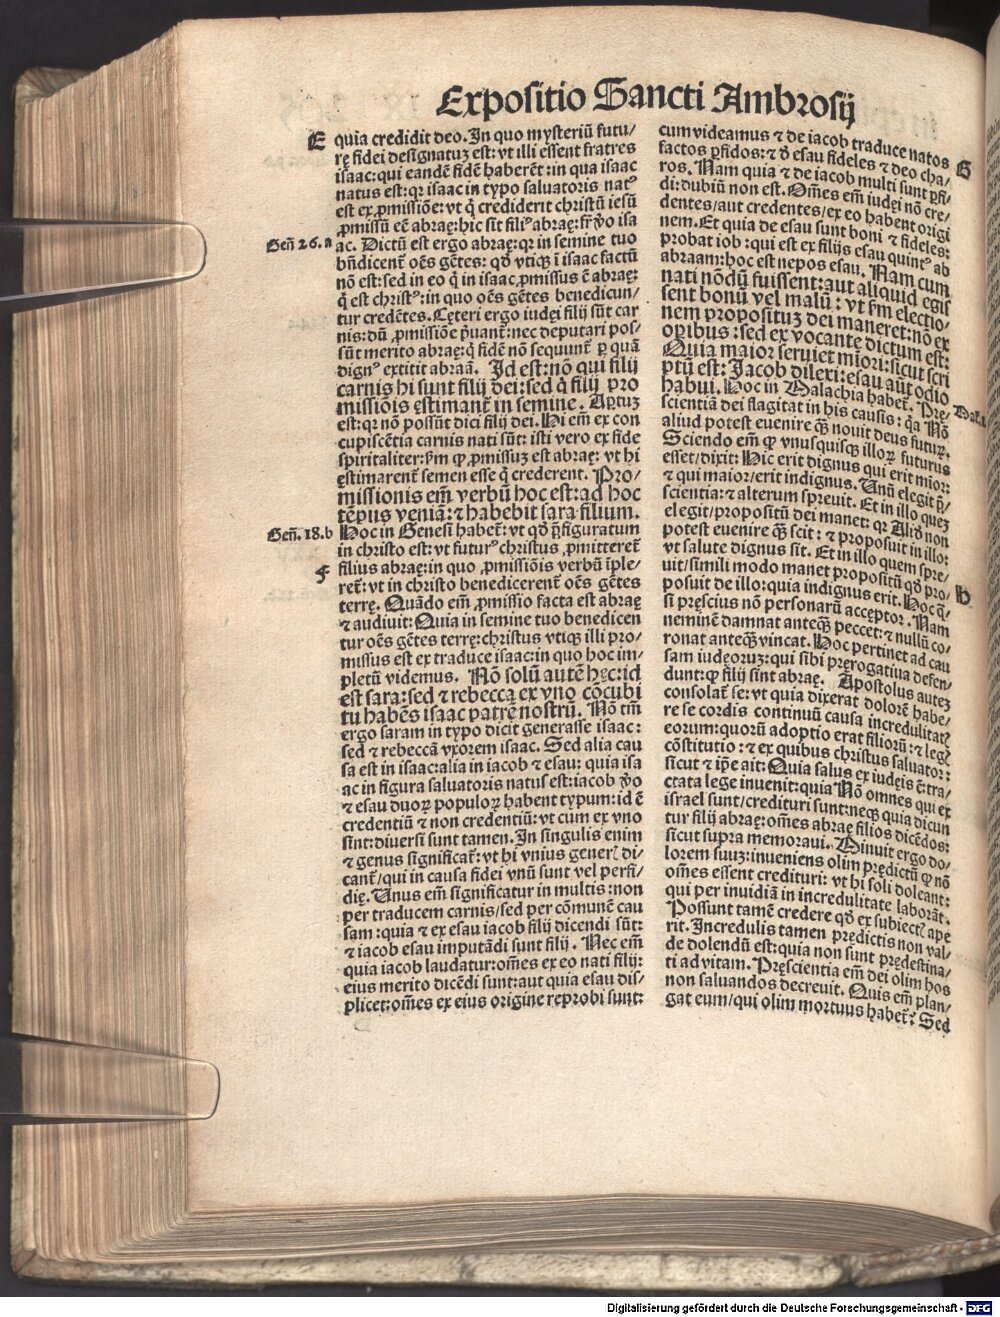 Expositio Sancti Ambrosij
E quia credidit deo. In quo mysteriū futu/
rę fidei designatuꝫ est: vt illi essent fratres
isaac: qui eandē fidē haberēt: in qua isaac
natus est: qꝛ isaac in typo saluatoris natꝰ
est ex ꝓmissiōe: vt q̇ crediderit christū iesū
ꝓmissū eē abraę: hic sit filiꝰ abraę: fr̄ v̊o isa
Geñ 26. a ac. Dictū est ergo abraę: qꝛ in semine tuo
bñdicent̄ oēs gētes: qđ vtiqꝫ ī isaac factū
nō est: sed in eo q̇ in isaac ꝓmissus ē abraę:
q̇ est christꝰ: in quo oēs gētes benedicun/
tur credētes. Cęteri ergo iudęi filij sūt car
nis: dū ꝓmissiōe p̄uant̄: nec deputari pos/
sūt merito abraę: q̇ fidē nō sequunt̄ ꝑ quā
dignꝰ extitit abraā. Id est: nō qui filij
carnis hi sunt filij dei: sed q̇ filij pro
missiōis ęstimant̄ in semine. Aꝑtuꝫ
est: qꝛ nō possūt dici filij dei. Hi em̄ ex con
cupiscētia carnis nati sūt: isti vero ex fide
spiritaliter: ẜm ꝙ ꝓmissuꝫ est abraę: vt hi
ęstimarent̄ semen esse q̇ crederent. Pro/
missionis em̄ verbū hoc est: ad hoc
tēpus veniā: ⁊ habebit sara filium.
Geñ. 18. b Hoc in Genesi habet̄: vt qđ p̄figuratum
in christo est: vt futurꝰ christus ꝓmitteret̄
F filius abraę: in quo ꝓmissiōis verbū īple/
ret̄: vt in christo benedicerent̄ oēs gētes
terrę. Quādo em̄ ꝓmissio facta est abraę
⁊ audiuit: Quia in semine tuo benedicen
tur oēs gētes terrę: christus vtiqꝫ illi pro/
missus est ex traduce isaac: in quo hoc im/
pletū videmus. Nō solū autē hęc: id
est sara: sed ⁊ rebecca ex vno cōcubi
tu habēs isaac patrē nostrū. Nō tm̄
ergo saram in typo dicit generasse isaac:
sed ⁊ rebeccā vxorem isaac. Sed alia cau
sa est in isaac: alia in iacob ⁊ esau: quia isa
ac in figura saluatoris natus est: iacob v̊o
⁊ esau duoꝝ populoꝝ habent typum: id ē
credentiū ⁊ non credentiū: vt cum ex vno
sint: diuersi sunt tamen. In singulis enim
⁊ genus significat̄: vt hi vnius generꝭ di/
cant̄/ qui in causa fidei vnū sunt vel perfi/
dię. Unus em̄ significatur in multis: non
per traducem carnis/ sed per cōmunē cau
sam: quia ⁊ ex esau iacob filij dicendi sūt:
⁊ iacob esau imputādi sunt filij. Nec em̄
quia iacob laudatur: oēs ex eo nati filij:
eius merito dicēdi sunt: aut quia esau dis/
plicet: om̄es ex eius origine reprobi sunt:
cum videamus ⁊ de iacob traduce natos
G factos ꝑfidos: ⁊ đ esau fideles ⁊ deo cha/
ros. Nam quia ⁊ de iacob multi sunt ꝑfi/
di: dubiū non est. Om̄es em̄ iudęi nō cre/
dentes/ aut credentes/ ex eo habent origi
nem. Et quia de esau sunt boni ⁊ fideles:
probat iob: qui est ex filijs esau quintꝰ ab
abraam: hoc est nepos esau. Nam cum
nati nōdū fuissent: aut aliquid egis
sent bonū vel malū: vt ẜm electio/
nem propositum dei maneret: nō ex
oꝑibus: sed ex vocante dictum est:
Quia maior seruiet miori: sicut scri
ptū est: Jacob dilexi: esau aūt odio
habui. Hoc in Malachia habet̄. Pręs Mal. 1
scientiā dei flagitat in his causis: q̇a Nō
aliud potest euenire q̄ꝫ nouit deus futuꝝ.
Sciendo em̄ ꝙ vnusquisqꝫ illoꝝ futurus
esset/ dixit: Hic erit dignus qui erit mior:
⁊ qui maior/ erit indignus. Unū elegit p̄/
scientia: ⁊ alterum spreuit. Et in illo queꝫ
elegit/ propositū dei manet: qꝛ Aliđ non
potest euenire q̄ꝫ scit: ⁊ proposuit in illo:
vt salute dignus sit. Et in illo quem spre/
uit/ simili modo manet propositū qđ pro/
H posuit de illo: quia indignus erit. Hoc q̄/
si pręscius nō personarū acceptor. Nam
neminē damnat anteq̄ꝫ peccet: ⁊ nullū co/
ronat anteq̄ꝫ vincat. Hoc pertinet ad cau
sam iudęoruꝫ: qui sibi pręrogatiua defen/
dunt: ꝙ filij sint abraę. Apostolus auteꝫ
consolat̄ se: vt quia dixerat dolorē habe/
re se cordis continuū causa incredulitatꝭ
eorum: quorū adoptio erat filiorū: ⁊ legꝭ
cōstitutio: ⁊ ex quibus christus saluator:
sicut ⁊ ip̄e ait: Quia salus ex iudęis ē: tra/
ctata lege inuenit: quia Nō omnes qui ex
israel sunt/ credituri sunt: neqꝫ quia dicun
tur filij abraę: om̄es abrae filios dicēdos:
sicut supra memoraui. Minuit ergo do/
lorem suuꝫ: inueniens olim prędictū ꝙ nō
om̄es essent credituri: vt hi soli doleant:
qui per inuidiā in incredulitate laborāt.
Possunt tamē credere qđ ex subiectꝭ ape
rit. Incredulis tamen prędictis non val/
de dolendū est: quia non sunt prędestina/
ti ad vitam. Pręscientia em̄ dei olim hos
non saluandos decreuit. Quis em̄ plan/
gat eum/ qui olim mortuus habet̄? Sed
Digitalisierung gefördert durch die Deutsche Forschungsgemeinschaft - DFG